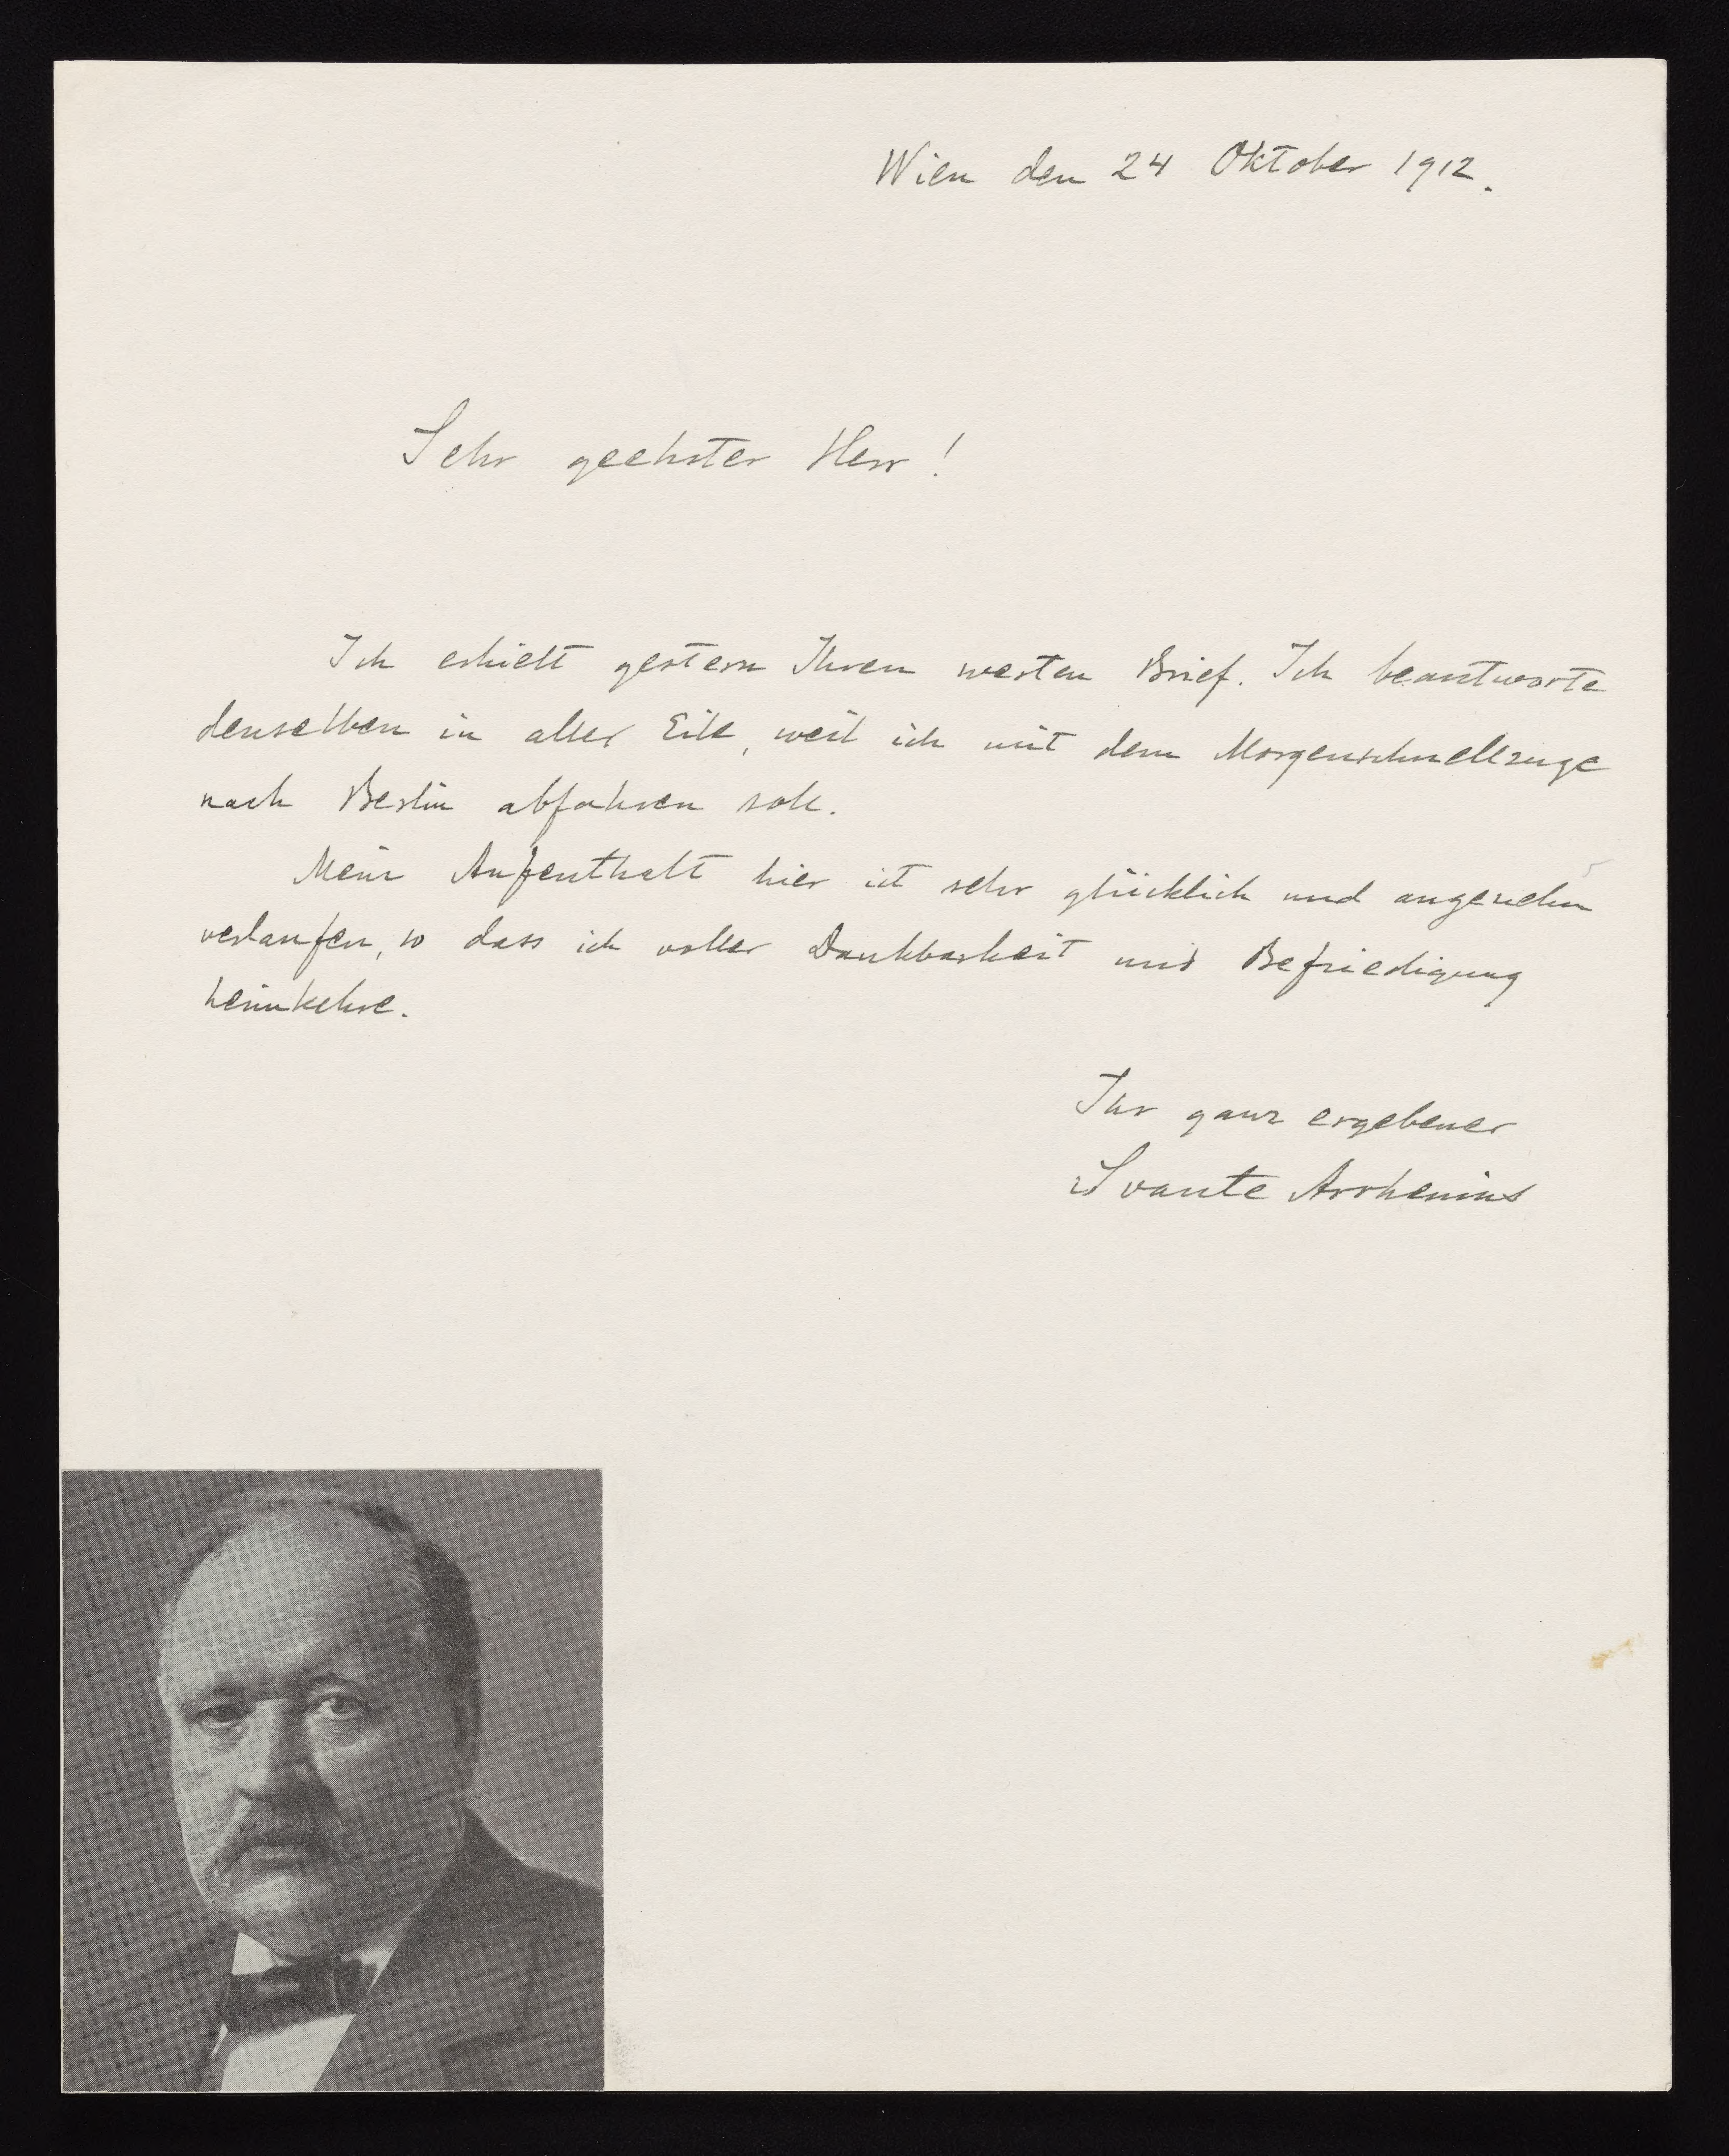 Wien den 24 Oktober 1912.
Sehr geehrter Herr!
Ich erhielt gestern Ihren werten Brief. Ich beantworte
denselben in aller Eile, weil ich mit dem Morgenschnellzuge
nach Berlin abfahren soll.
Mein Aufenthalt hier ist sehr glücklich und angenehm
verlaufen, so dass ich voller Dankbarkeit und Befriedigung
heimkehre.
Ihr ganz ergebener
Svante Arrhenius